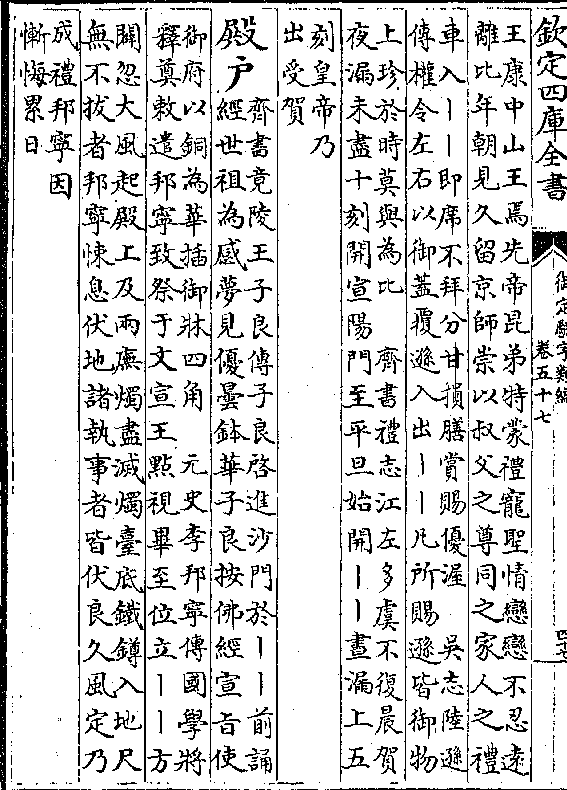 欽定四庫全書
御定駢字類編
卷五十七
四七
王康中山王焉先帝昆弟特蒙禮寵聖情戀戀不忍遠
離比年朝見久留京師崇以叔父之尊同之家人之禮
車入丨丨即席不拜分甘損膳賞賜優渥 吳志陸遜
傳權令左右以御蓋覆遜入出丨丨凡所賜遜皆御物
上珍於時莫與為比 齊書禮志江左多虞不復晨賀
夜漏未盡十刻開宣陽門至平旦始開丨丨晝漏上五
刻皇帝乃
出受賀
殿户 齊書竟陵王子良傳子良啓進沙門於丨丨前誦
經世祖為感夢見優曇鉢華子良按佛經宣旨使
御府以銅為華插御牀四角 元史李邦寧傳國學將
釋奠敕遣邦寧致祭于文宣王點視畢至位立丨丨方
闢忽大風起殿上及兩廡燭盡滅燭臺底鐵鐏入地尺
無不拔者邦寧悚息伏地諸執事者皆伏良久風定乃
成禮邦寧因
慚悔累日